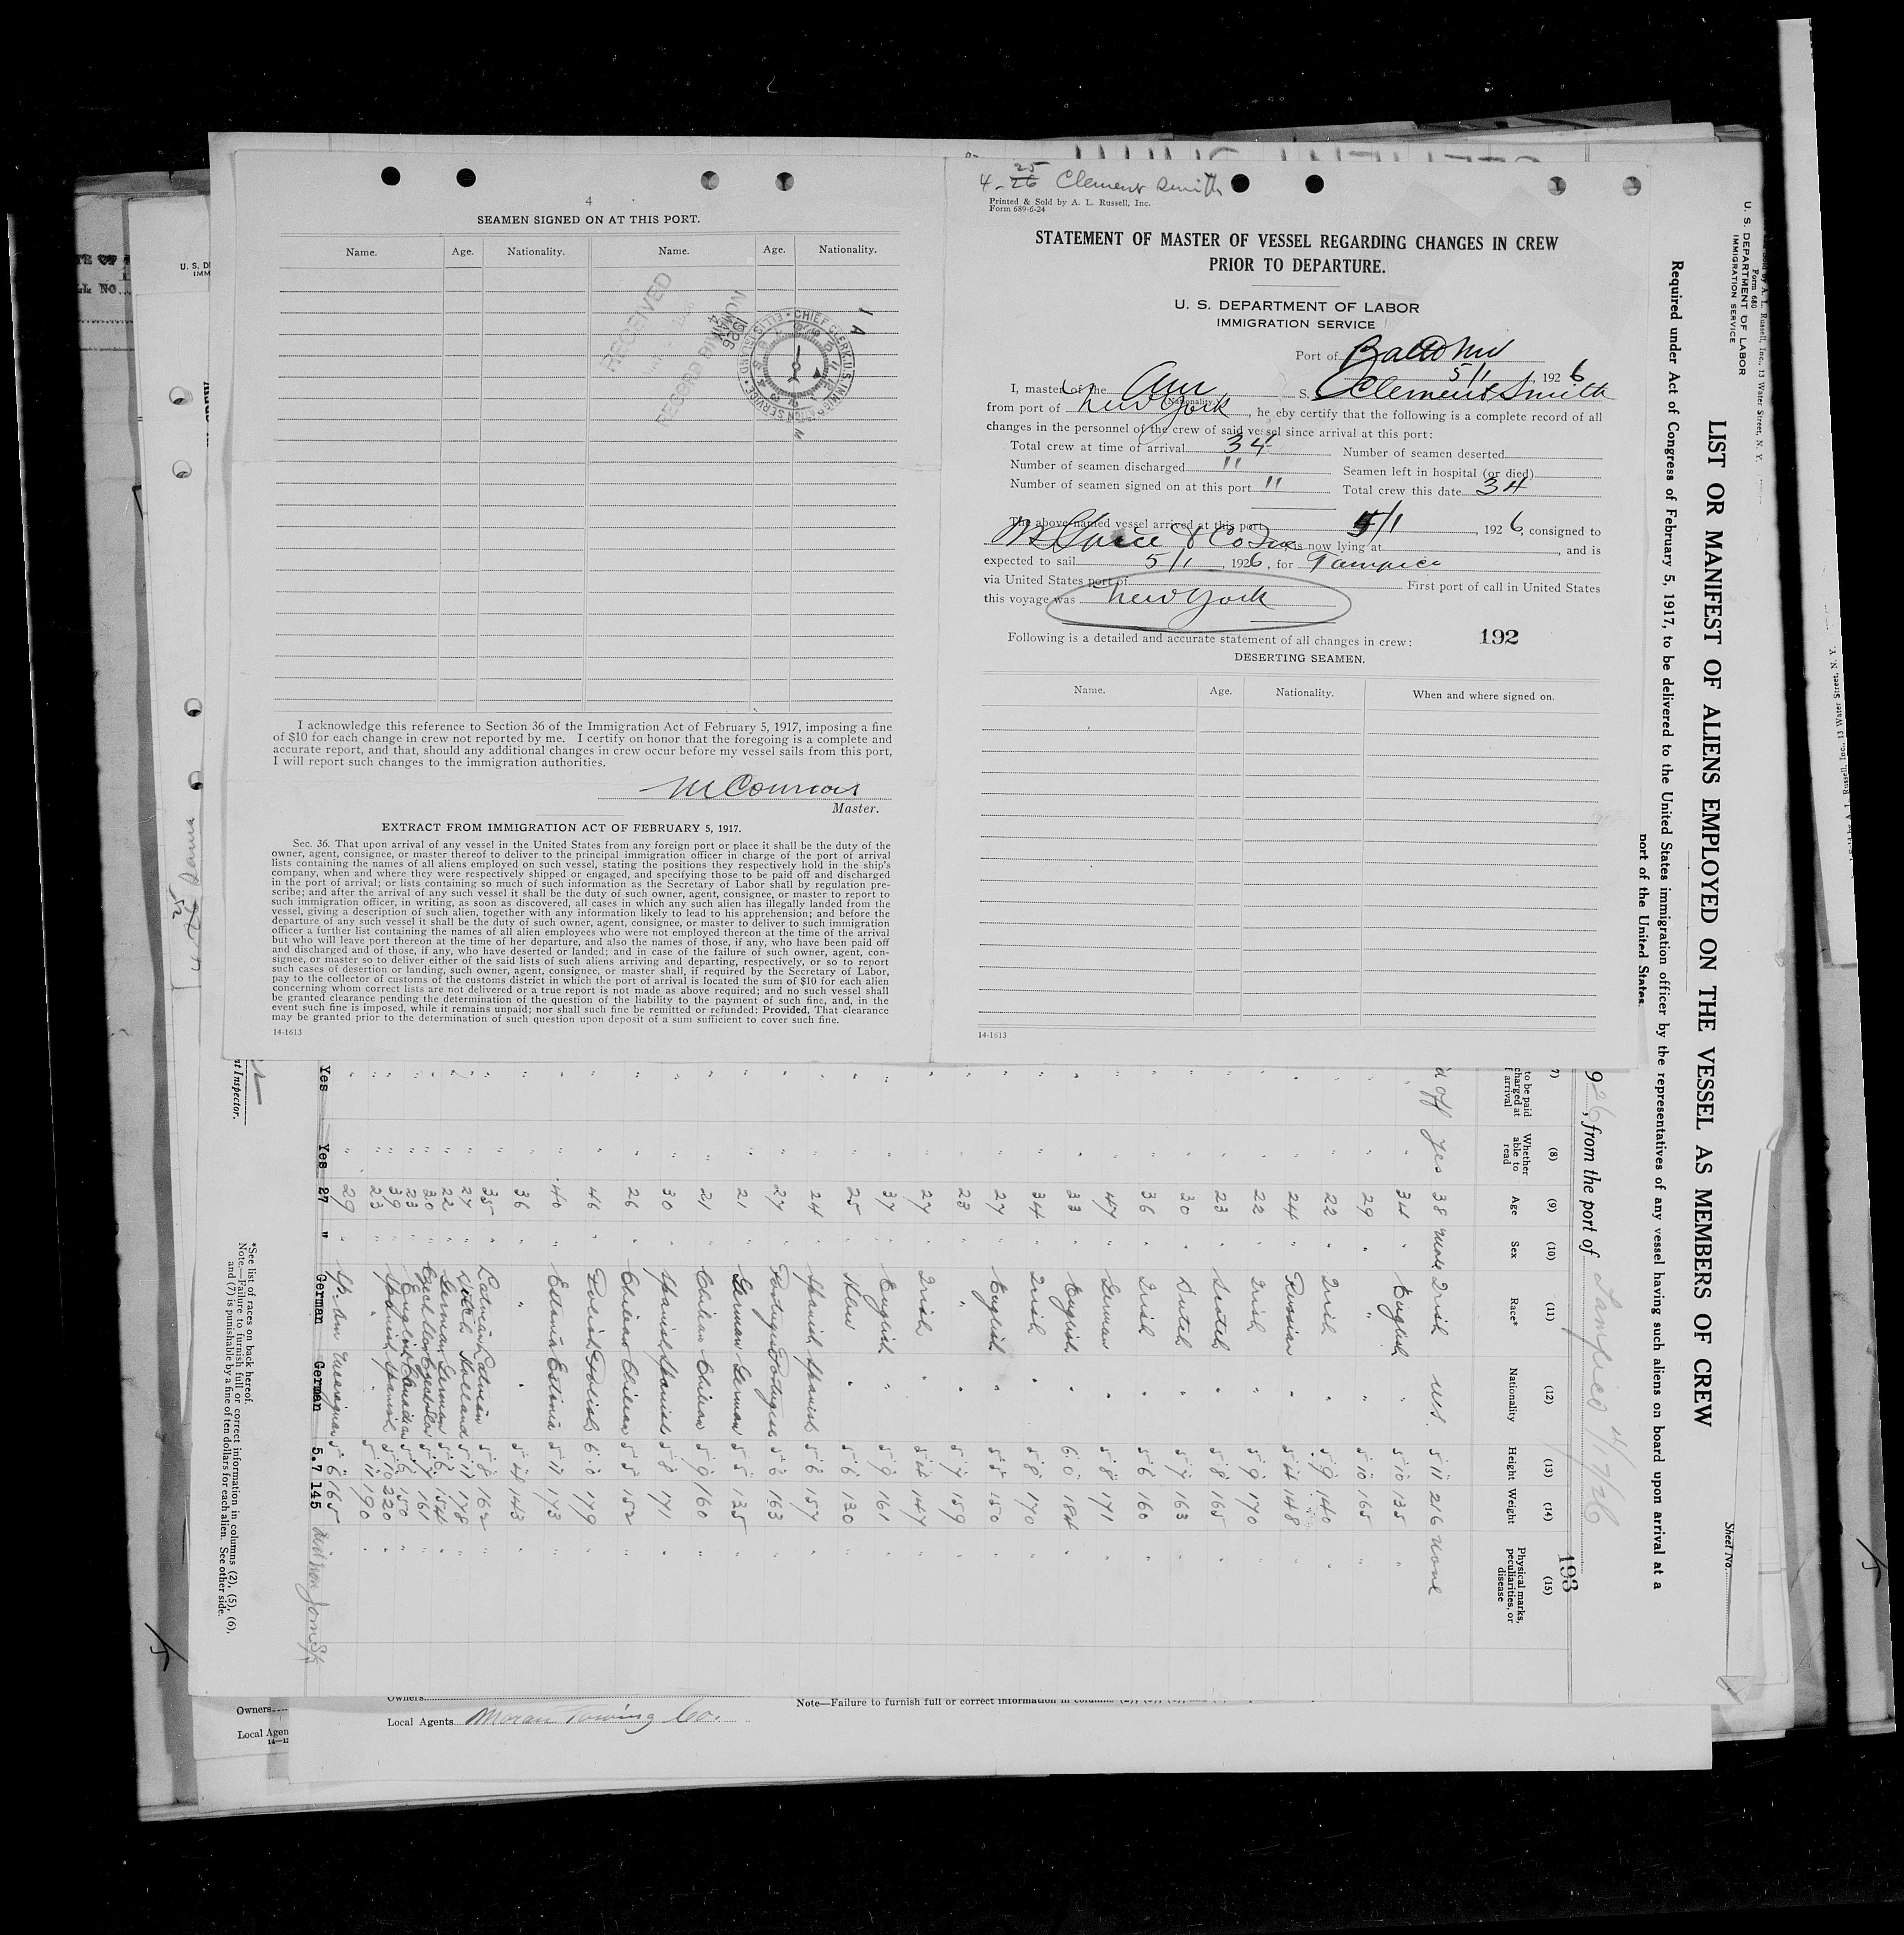 4
SEAMEN SIGNED ON AT THIS PORT.
Name. Age. Nationality. Name. Age. Nationality.
RECEIVED
RECORD DIV
1926
CHIEF CLERK, U.S. IMMIGRATION SERVICE • ELLIS ISLAND •
I acknowledge this reference to Section 36 of the Immigration Act of February 5, 1917, imposing a fine
of $10 for each change in crew not reported by me. I certify on honor that the foregoing is a complete and
accurate report, and that, should any additional changes in crew occur before my vessel sails from this port,
I will report such changes to the immigration authorities.
Master.
EXTRACT FROM IMMIGRATION ACT OF FEBRUARY 5, 1917.
Sec. 36. That upon arrival of any vessel in the United States from any foreign port or place it shall be the duty of the
owner, agent, consignee, or master thereof to deliver to the principal immigration officer in charge of the port of arrival
lists containing the names of all aliens employed on such vessel, stating the positions they respectively hold in the ship's
company, when and where they were respectively shipped or engaged, and specifying those to be paid off and discharged
in the port of arrival; or lists containing so much of such information as the Secretary of Labor shall by regulation pre-
scribe; and after the arrival of any such vessel it shall be the duty of such owner, agent, consignee, or master to report to
such immigration officer, in writing, as soon as discovered, all cases in which any such alien has illegally landed from the
vessel, giving a description of such alien, together with any information likely to lead to his apprehension; and before the
departure of any such vessel it shall be the duty of such owner, agent, consignee, or master to deliver to such immigration
officer a further list containing the names of all alien employees who were not employed thereon at the time of the arrival
but who will leave port thereon at the time of her departure, and also the names of those, if any, who have been paid off
and discharged and of those, if any, who have deserted or landed; and in case of the failure of such owner, agent, con-
signee, or master so to deliver either of the said lists of such aliens arriving and departing, respectively, or so to report
such cases of desertion or landing, such owner, agent, consignee, or master shall, if required by the Secretary of Labor,
pay to the collector of customs of the customs district in which the port of arrival is located the sum of $10 for each alien
concerning whom correct lists are not delivered or a true report is not made as above required; and no such vessel shall
be granted clearance pending the determination of the question of the liability to the payment of such fine, and, in the
event such fine is imposed, while it remains unpaid; nor shall such fine be remitted or refunded: Provided, That clearance
may be granted prior to the determination of such question upon deposit of a sum sufficient to cover such fine.
14-1613
25
4-26 Clement Smith
Printed & Sold by A. L. Russell, Inc.
Form 689-6-24
STATEMENT OF MASTER OF VESSEL REGARDING CHANGES IN CREW
PRIOR TO DEPARTURE.
U. S. DEPARTMENT OF LABOR
IMMIGRATION SERVICE
Port of Balto Md
5/1, 1926
I, master of the Am S. S. Clement Smith
(Nationality.)
from port of New York, he eby certify that the following is a complete record of all
changes in the personnel of the crew of said vessel since arrival at this port:
Total crew at time of arrival 34 Number of seamen deserted
Number of seamen discharged " Seamen left in hospital (or died)
Number of seamen signed on at this port " Total crew this date 34
The above-named vessel arrived at this port 5/1, 1926, consigned to
& Co Inc is now lying at , and is
expected to sail 5/1, 1926, for Tampico
via United States port of First port of call in United States
this voyage was New York
Following is a detailed and accurate statement of all changes in crew: 192
DESERTING SEAMEN.
Name. Age. Nationality. When and where signed on.
14-1613
Form 680
U. S. DEPARTMENT OF LABOR
IMMIGRATION SERVICE
Sheet No.
LIST OR MANIFEST OF ALIENS EMPLOYED ON THE VESSEL AS MEMBERS OF CREW
Required under Act of Congress of February 5, 1917, to be delivered to the United States immigration officer by the representatives of any vessel having such aliens on board upon arrival at a
port of the United States.
926, from the port of Tampico 4/17/26
193
(8) (9) (10) (11) (12) (13) (14) (15)
Whether able to read Age Sex Race* Nationality Height Weight Physical marks, peculiarities, or disease
d off yes 38 male Irish U.S. 5 11 216 none
" 34 " English " 5 10 135 "
" 29 " " " 5 10 165 "
" 22 " Irish " 5 9 140 "
" 24 " Russian " 5 4 148 "
" 22 " Irish " 5 9 170 "
" 23 " Scotch " 5 8 165 "
" 30 " Dutch " 5 7 163 "
" 36 " Irish " 5 6 160 "
" 47 " German " 5 8 171 "
" 33 " English " 6 0 184 "
" 34 " Irish " 5 8 170 "
" 27 " English " 5 5 150 "
" 23 " " " 5 7 159 "
" 27 " Irish " 5 4 147 "
" 37 " English " 5 9 161 "
" 25 " " 5 6 130 "
" 24 " Spanish Spanish 5 6 157 "
" 27 " Portugese Portugese 5 6 163 "
" 21 " German German 5 5 135 "
" 21 " Chilean Chilean 5 9 160 "
" 30 " Spanish Spanish 5 8 171 "
" 26 " Chilean Chilean 5 5 152 "
" 46 " Polish Polish 6 0 179 "
" 40 " Estonia Estonia 5 11 173 "
" 36 " " " 5 4 143 "
" 35 " 5 8 162 "
" 27 " Dutch Holland 5 11 178 "
" 22 " German German 5 6 154 "
" 30 " 5 7 161 "
" 23 " English Canadian 5 6 150 "
" 39 " Spanish Spanish 5 10 220 "
" 23 " " " 5 11 190 "
" 29 " 5 6 165
Yes Yes 27 " German German 5.7 145 did not join ship
*See list of races on back hereof.
Note.—Failure to furnish full or correct information in columns (2), (5), (6),
and (7) is punishable by a fine of ten dollars for each alien. See other side.
nt Inspector.
Owners
Local Agents Moran Towing Co.
Note—Failure to furnish full or correct information in columns
Owners
Local Agen